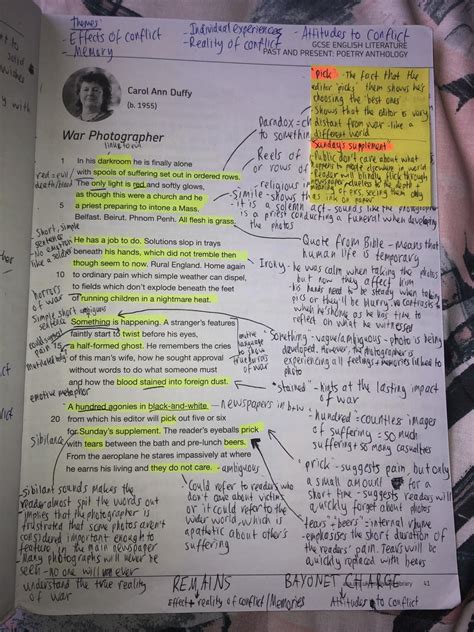 themes
- Effects of conflict
- Memory
- Individual experiences
- Reality of conflict
- Attitudes to conflict
GCSE ENGLISH LITERATURE
PAST AND PRESENT: POETRY ANTHOLOGY
Carol Ann Duffy
(b. 1955)
War Photographer
"Pick" - The fact that the
editor 'picks' them shows he's
choosing the best ones
- Shows that the editor is very
distant from war - like a
different world
Sunday's supplement
- Public don't care about what
Reader will blindly flick through
newspaper
1 In his darkroom he is finally alone
with spools of suffering set out in ordered rows.
The only light is red and softly glows,
as though this were a church and he
5 a priest preparing to intone a Mass.
Belfast. Beirut. Phnom Penh. All flesh is grass.
He has a job to do. Solutions slop in trays
beneath his hands, which did not tremble then
though seem to now. Rural England. Home again
10 to ordinary pain which simple weather can dispel,
to fields which don't explode beneath the feet
of running children in a nightmare heat.
Something is happening. A stranger's features
faintly start to twist before his eyes,
15 a half-formed ghost. He remembers the cries
of this man's wife, how he sought approval
without words to do what someone must
and how the blood stained into foreign dust.
A hundred agonies in black-and-white
20 from which his editor will pick out five or six
for Sunday's supplement. The reader's eyeballs prick
with tears between the bath and pre-lunch beers.
From the aeroplane he stares impassively at where
he earns his living and they do not care.
- ambiguous
red = evil
death/blood
Reels of
or rows of
religious
Simile - shows
it is a solemn act - sounds like the photographer
is a priest conducting a funeral when developing
the photos
Quote from Bible - Means that
human life is temporary
Irony - he was calm when taking the photos
but now they affect him
- his hands need to be steady when taking
pics or they'll be blurry. Contrasts
when he's home as he has time to
reflect on what he witnessed
Short, simple
sentence
No emotion
like a soldier
horrors
of war
simple short ambiguous
sentence
emotive
language
to show
tortures of
war
Something - vague/ambiguous - photo is being
developed. However, the photographer is
experiencing all feelings + memories linked to
photo
emotive metaphor
"Stained" - hints at the lasting impact
of war
- Newspapers in b+w
- hundred = countless images
of suffering - so much
suffering + so many casualties
Sibilance
'prick' - suggests pain, but only
a small amount for a
short time - suggests readers will
quickly forget about photos
'tears + beers' = internal rhyme
- emphasises the short duration of
the readers' pain. Tears will be
quickly replaced with beers
Could refer to readers who
don't care about victims
or it could refer to the
wider world, which is
apathetic about other's
suffering
- Sibilant sounds makes the
reader almost spit the words out
- implies that the photographer is
frustrated that some photos aren't
considered important enough to
feature in the main newspaper
- Many photographs will never be
seen - no one will ever
understand the true reality
of war
REMAINS
Effect + reality of conflict / Memories
BAYONET CHARGE
Attitudes to conflict
41